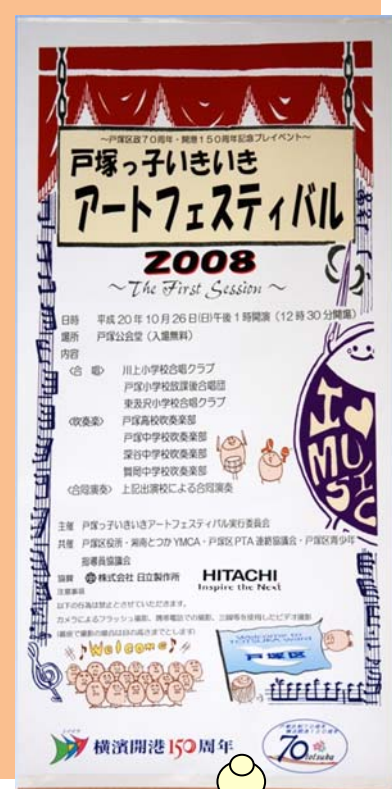 ～戸塚区政70周年・開港150周年記念プレイベント～
戸塚っ子いきいき
アートフェスティバル
2008
～The First Session～
日時 平成20年10月26日(日)午後1時開演(12時30分開場)
場所 戸塚公会堂(入場無料)
内容
〈合 唱〉 川上小学校合唱クラブ
戸塚小学校放課後合唱団
東汲沢小学校合唱クラブ
〈吹奏楽〉 戸塚高校吹奏楽部
戸塚中学校吹奏楽部
深谷中学校吹奏楽部
舞岡中学校吹奏楽部
〈合同演奏〉 上記出演校による合同演奏
主催 戸塚っ子いきいきアートフェスティバル実行委員会
共催 戸塚区役所・湘南とつかYMCA・戸塚区PTA連絡協議会・戸塚区青少年
指導員協議会
協賛 株式会社 日立製作所 HITACHI
Inspire the Next
注意事項
以下の行為は禁止とさせていただきます。
カメラによるフラッシュ撮影、携帯電話での撮影、三脚等を使用したビデオ撮影
(最後で撮影の場合は目の高さまでとします)
I MUSIC
Welcome
Welcome to
TOTSUKA Ward
戸塚区
横濱開港150周年
70 totsuka